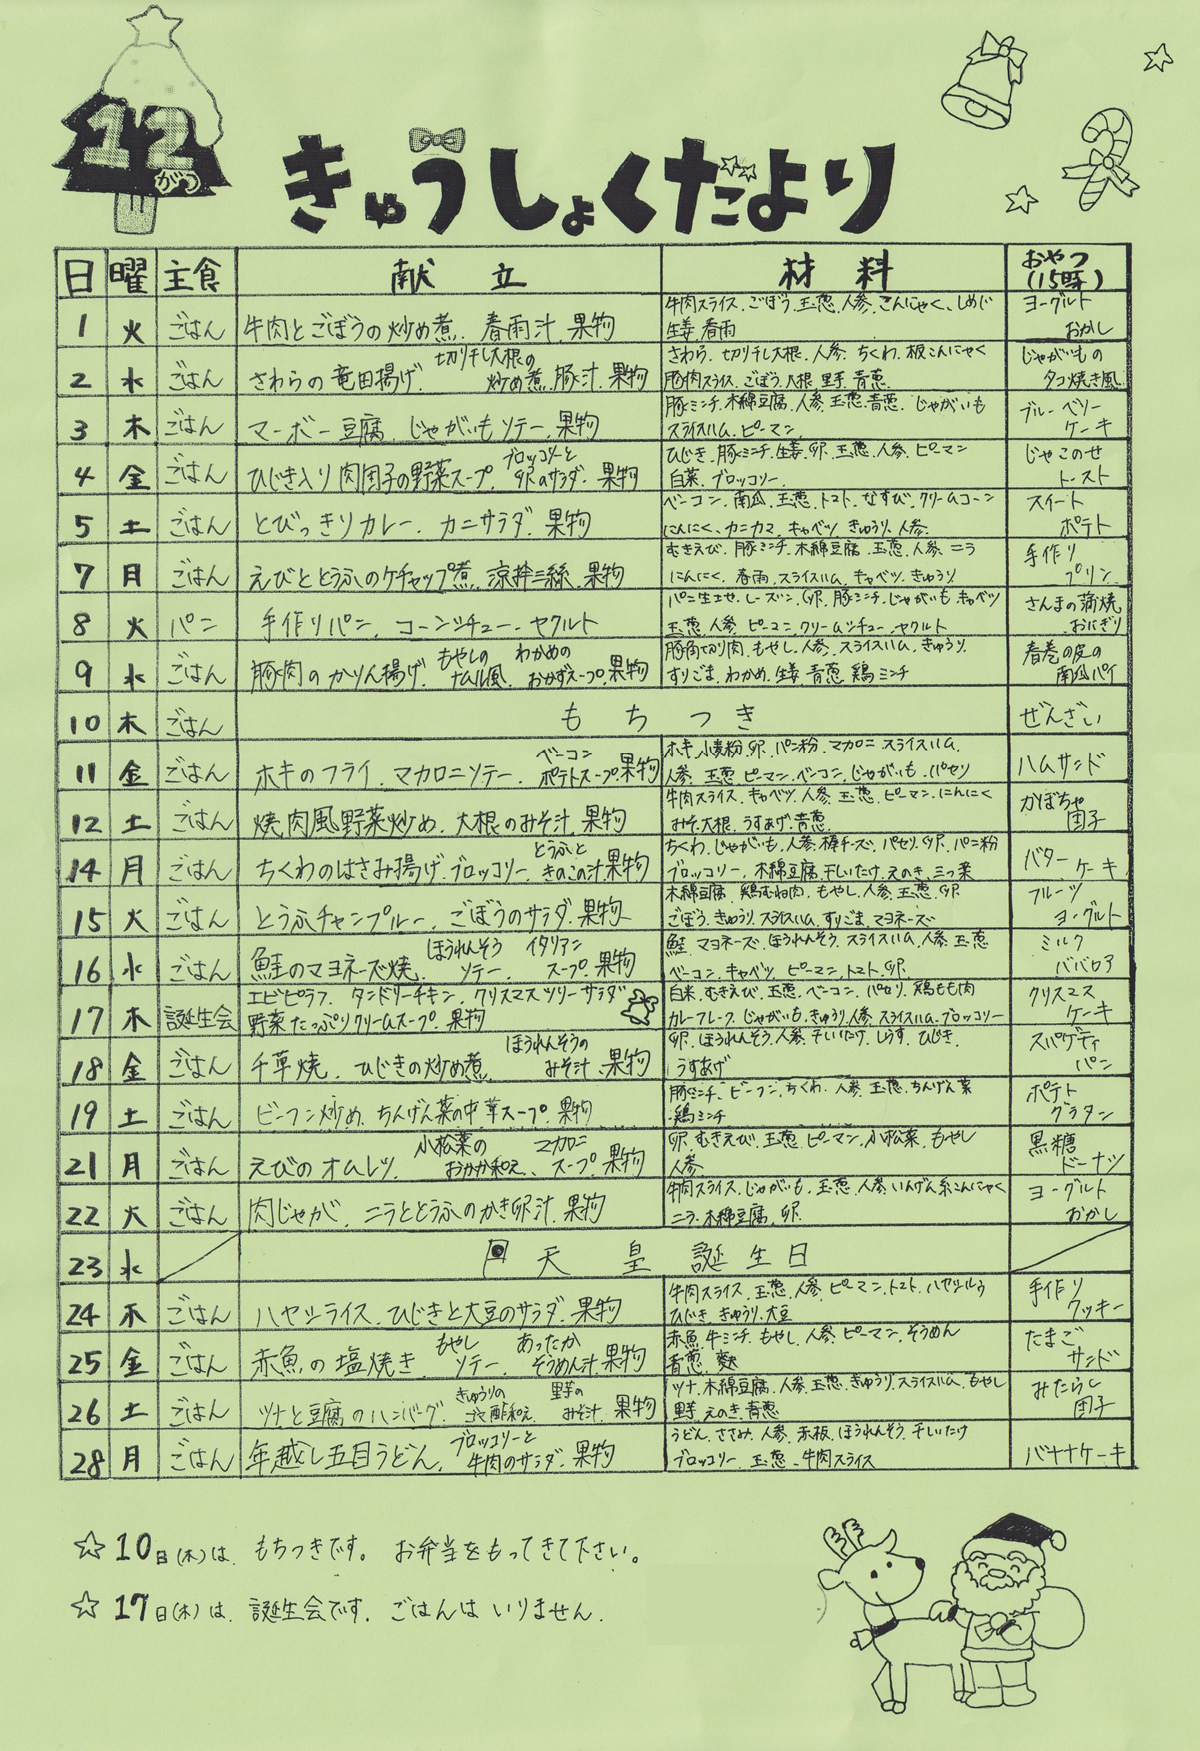 12がつ
きゅうしょくだより
日 曜 主食 献立 材料 おやつ(15時)
1 火 ごはん 牛肉とごぼうの炒め煮、春雨汁、果物 牛肉スライス、ごぼう、玉葱、人参、こんにゃく、しめじ 生姜、春雨 ヨーグルト おかし
2 水 ごはん さわらの竜田揚げ、切り干し大根の炒め煮、豚汁、果物 さわら、切り干し大根、人参、ちくわ、板こんにゃく 豚肉スライス、ごぼう、大根、里芋、青葱 じゃがいもの タコ焼き風
3 木 ごはん マーボー豆腐、じゃがいもソテー、果物 豚ミンチ、木綿豆腐、人参、玉葱、青葱、じゃがいも スライスハム、ピーマン ブルーベリー ケーキ
4 金 ごはん ひじき入り肉団子の野菜スープ、ブロッコリーと卵のサラダ、果物 ひじき、豚ミンチ、生姜、卵、玉葱、人参、ピーマン 白菜、ブロッコリー じゃこのせ トースト
5 土 ごはん とびっきりカレー、カニサラダ、果物 ベーコン、南瓜、玉葱、トマト、なすび、クリームコーン にんにく、カニカマ、キャベツ、きゅうり、人参 スイート ポテト
7 月 ごはん えびととうふのケチャップ煮、涼拌三絲、果物 むきえび、豚ミンチ、木綿豆腐、玉葱、人参、ニラ にんにく、春雨、スライスハム、キャベツ、きゅうり 手作り プリン
8 火 パン 手作りパン、コーンシチュー、ヤクルト パン生地、レーズン、卵、豚ミンチ、じゃがいも、キャベツ 玉葱、人参、ピーマン、クリームシチュー、ヤクルト さんまの蒲焼 おにぎり
9 水 ごはん 豚肉のかりん揚げ、もやしのナムル風、わかめのおかずスープ、果物 豚角切り肉、もやし、人参、スライスハム、きゅうり、すりごま、わかめ、生姜、青葱、鶏ミンチ 春巻の皮の 南瓜パイ
10 木 ごはん もちつき ぜんざい
11 金 ごはん ホキのフライ、マカロニソテー、ベーコンポテトスープ、果物 ホキ、小麦粉、卵、パン粉、マカロニ、スライスハム、人参、玉葱、ピーマン、ベーコン、じゃがいも、パセリ ハムサンド
12 土 ごはん 焼肉風野菜炒め、大根のみそ汁、果物 牛肉スライス、キャベツ、人参、玉葱、ピーマン、にんにく みそ、大根、うすあげ、青葱 かぼちゃ 団子
14 月 ごはん ちくわのはさみ揚げ、ブロッコリー、とうふときのこの汁、果物 ちくわ、じゃがいも、人参、棒チーズ、パセリ、卵、パン粉 ブロッコリー、木綿豆腐、干しいたけ、えのき、三つ葉 バター ケーキ
15 火 ごはん とうふチャンプルー、ごぼうのサラダ、果物 木綿豆腐、鶏むね肉、もやし、人参、玉葱、卵 ごぼう、きゅうり、スライスハム、すりごま、マヨネーズ フルーツ ヨーグルト
16 水 ごはん 鮭のマヨネーズ焼、ほうれんそうソテー、イタリアンスープ、果物 鮭、マヨネーズ、ほうれんそう、スライスハム、人参、玉葱 ベーコン、キャベツ、ピーマン、トマト、卵 ミルク ババロア
17 木 誕生会 エビピラフ、タンドリーチキン、クリスマスツリーサラダ 野菜たっぷりクリームスープ、果物 白米、むきえび、玉葱、ベーコン、パセリ、鶏もも肉 カレーフレーク、じゃがいも、きゅうり、人参、スライスハム、ブロッコリー クリスマス ケーキ
18 金 ごはん 千草焼、ひじきの炒め煮、ほうれんそうのみそ汁、果物 卵、ほうれんそう、人参、干しいたけ、しらす、ひじき、うすあげ スパゲティ パン
19 土 ごはん ビーフン炒め、ちんげん菜の中華スープ、果物 豚ミンチ、ビーフン、ちくわ、人参、玉葱、ちんげん菜 鶏ミンチ ポテト グラタン
21 月 ごはん えびのオムレツ、小松菜のおかか和え、マカロニスープ、果物 卵、むきえび、玉葱、ピーマン、小松菜、もやし 人参 黒糖 ドーナツ
22 火 ごはん 肉じゃが、ニラととうふのかき卵汁、果物 牛肉スライス、じゃがいも、玉葱、人参、いんげん、糸こんにゃく ニラ、木綿豆腐、卵 ヨーグルト おかし
23 水 天皇誕生日
24 木 ごはん ハヤシライス、ひじきと大豆のサラダ、果物 牛肉スライス、玉葱、人参、ピーマン、トマト、ハヤシルウ ひじき、きゅうり、大豆 手作り クッキー
25 金 ごはん 赤魚の塩焼き、もやしソテー、あったかそうめん汁、果物 赤魚、牛ミンチ、もやし、人参、ピーマン、そうめん 青葱、麩 たまご サンド
26 土 ごはん ツナと豆腐のハンバーグ、きゅうりのゴマ酢和え、里芋のみそ汁、果物 ツナ、木綿豆腐、人参、玉葱、きゅうり、スライスハム、もやし 里芋、えのき、青葱 みたらし 団子
28 月 ごはん 年越し五目うどん、ブロッコリーと牛肉のサラダ、果物 うどん、ささみ、人参、赤板、ほうれんそう、干しいたけ ブロッコリー、玉葱、牛肉スライス バナナケーキ
☆10日(木)は、もちつきです。お弁当をもってきて下さい。
☆17日(木)は、誕生会です。ごはんはいりません。